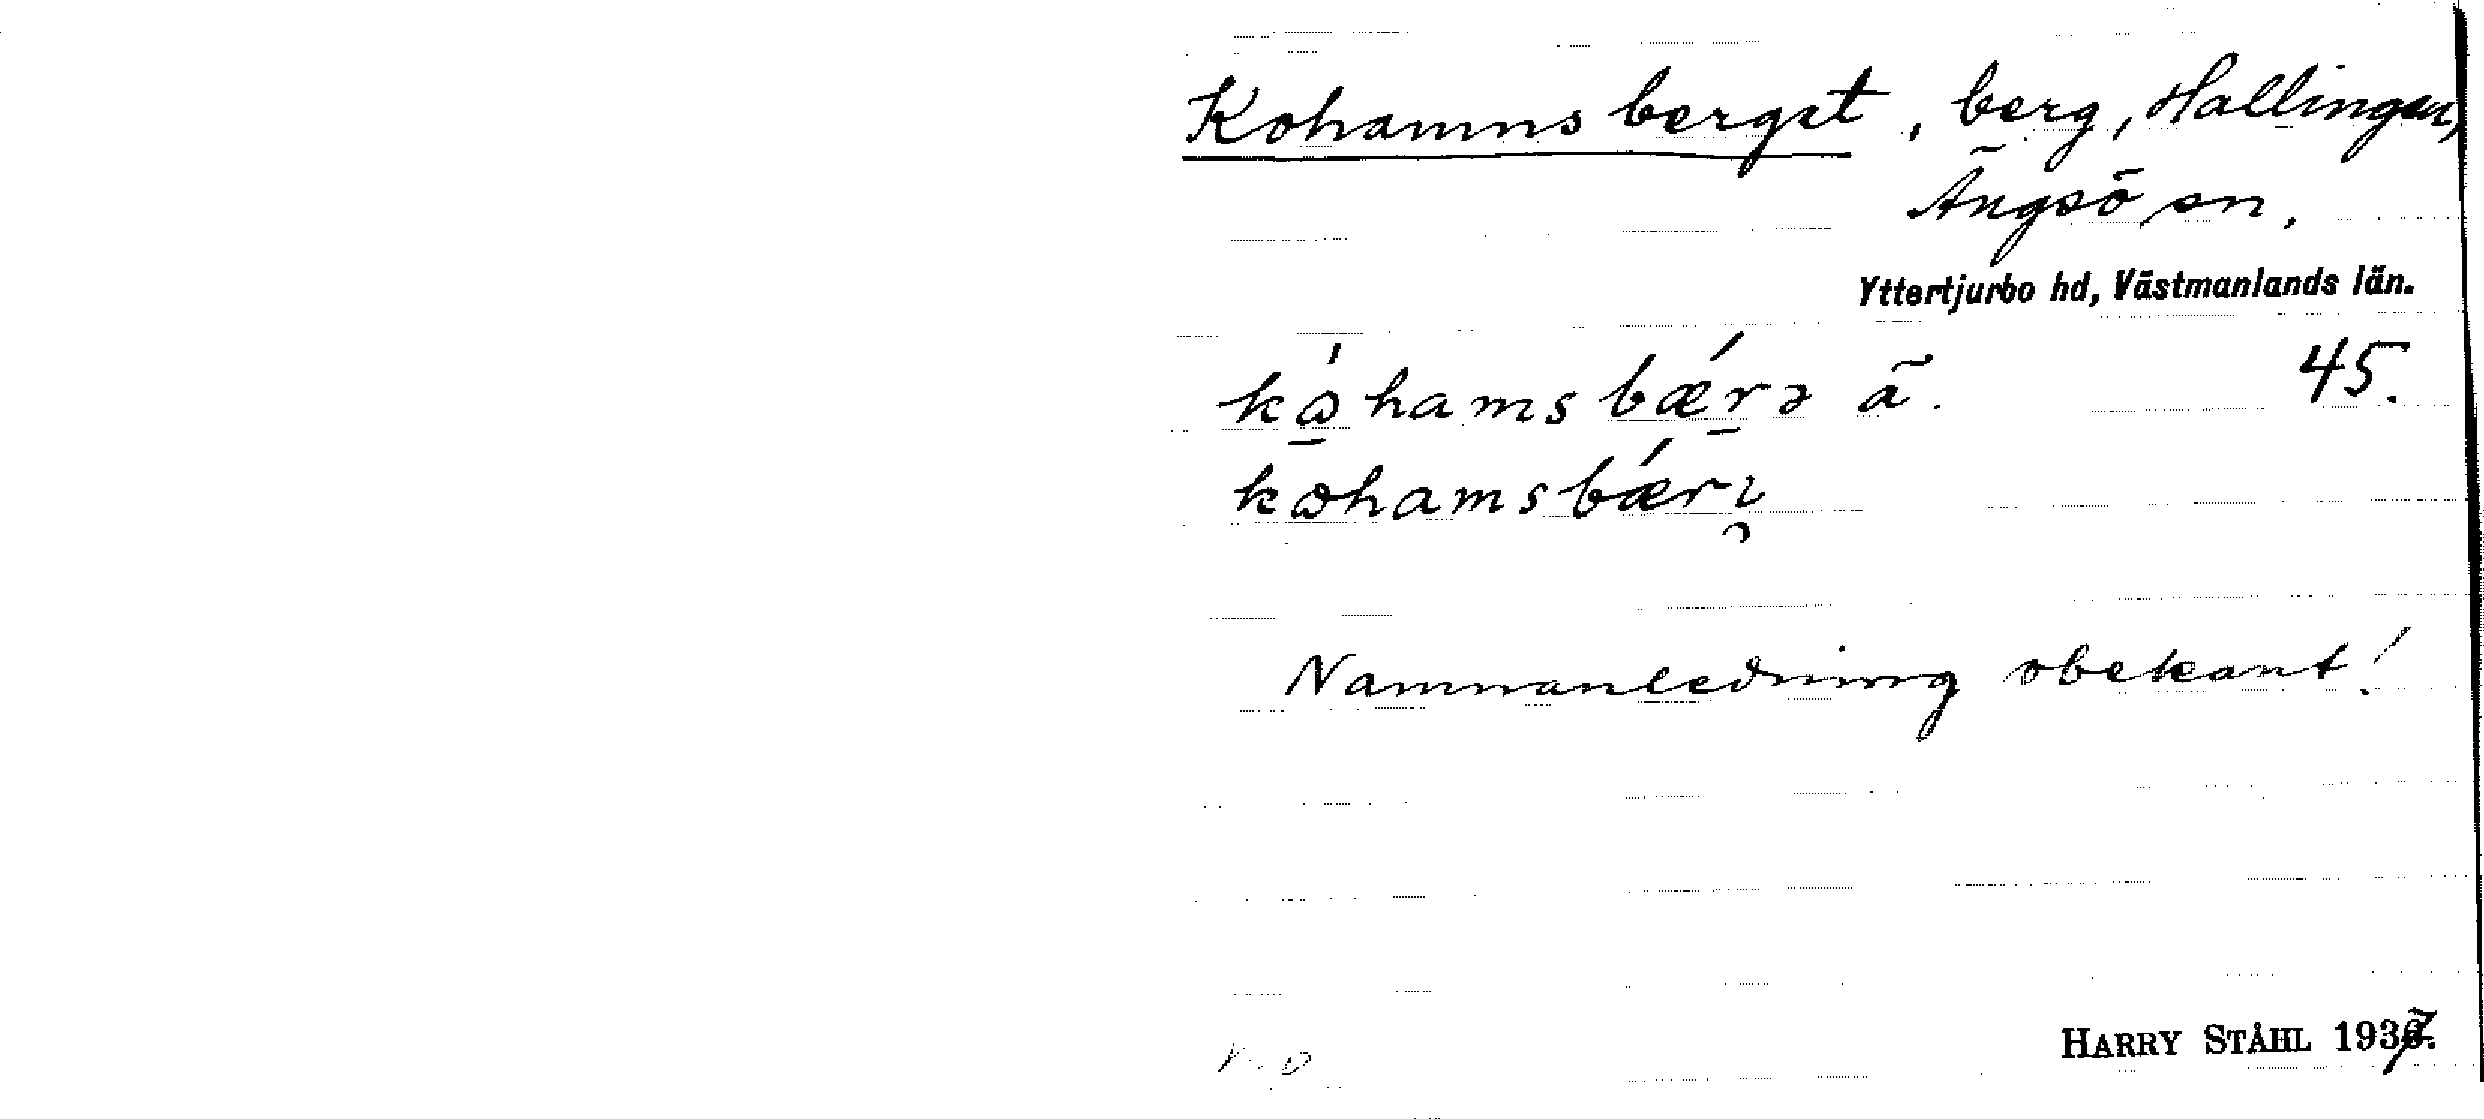 Kohamnsberget, berg, Hallingen,
Ängsö sn.
Yttertjurbo hd, Västmanlands län.
kɷ́hamsbǽrɔ ã. 45.
kɷhamsbǽrı̯
Namnanledning obekant!
HARRY STÅHL 1937.